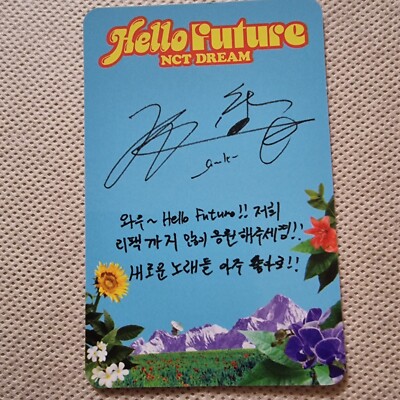 Hello Future
NCT DREAM
와우~ Hello Future!! 저희
리팩까지 많이 응원해주세욤!!
새로운 노래들 아주